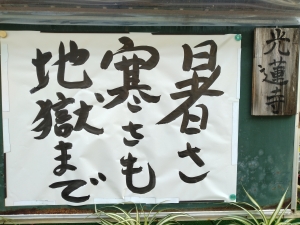 暑さ
寒さも
地獄まで
光蓮寺